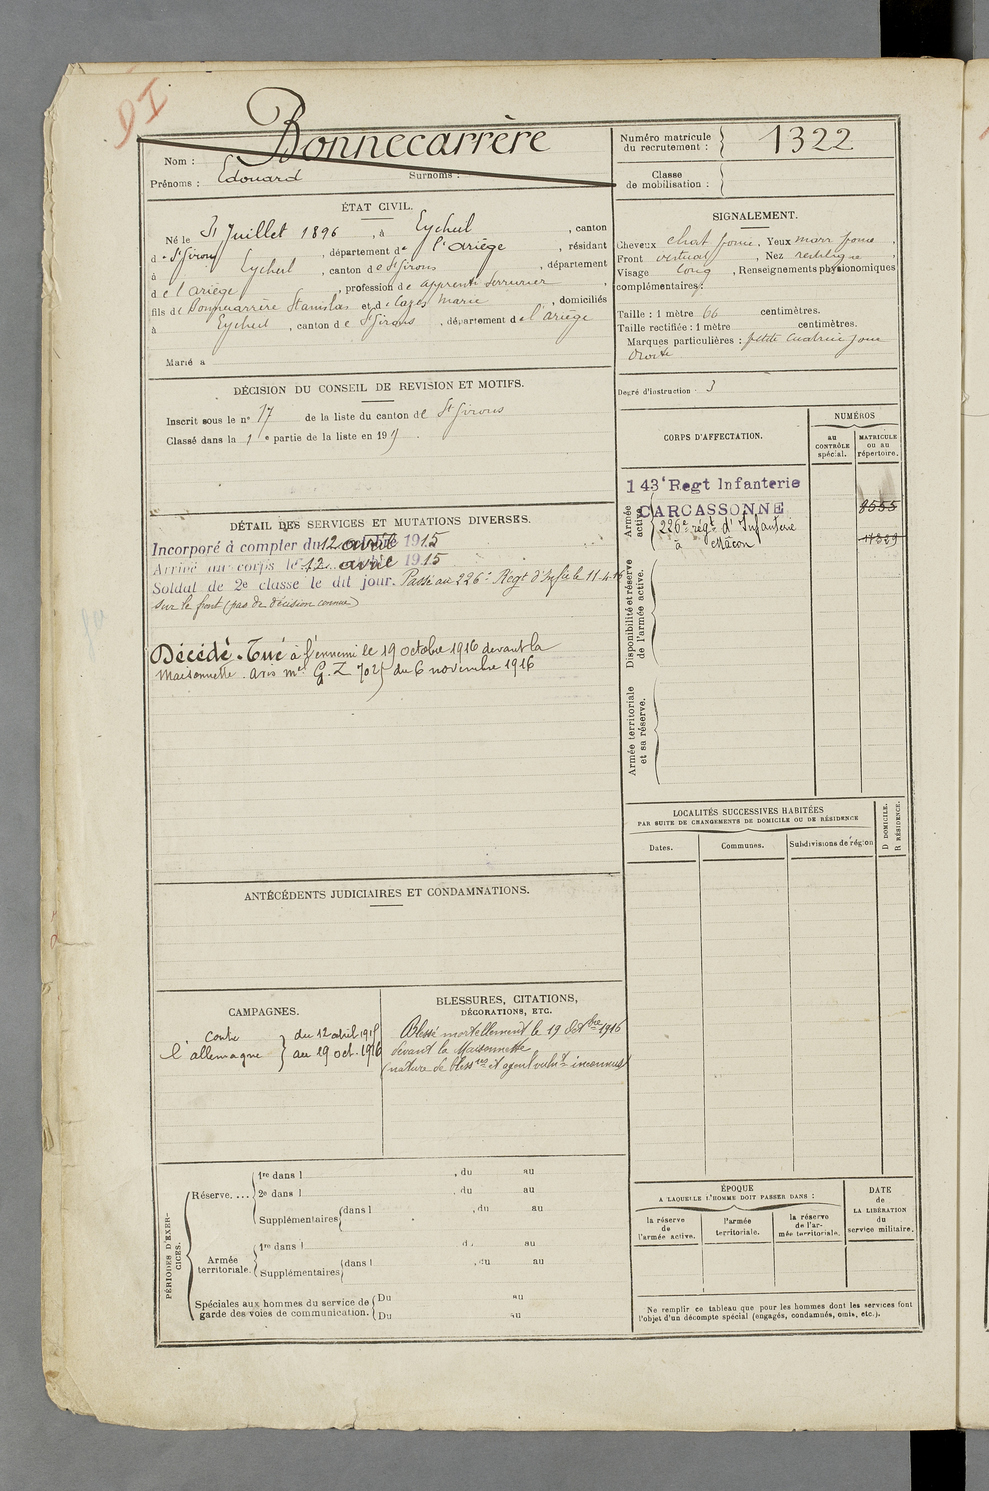 DI
Nom : Bonnecarrère
Prénoms : Edouard Surnoms :
Numéro matricule du recrutement : 1322
Classe de mobilisation :
ÉTAT CIVIL.
Né le 31 Juillet 1896, à Eycheil, canton
de St Girons, département de l'Ariège, résidant
à Eycheil, canton de St Girons, département
de l'Ariège, profession de apprenti serrurier,
fils de Bonnecarrère Stanislas et de Cazes Marie, domiciliés
à Eycheil, canton de St Girons, département de l'Ariège
Marié à
SIGNALEMENT.
Cheveux chat foncé, Yeux marr foncé,
Front vertical, Nez rectiligne,
Visage long, Renseignements physionomiques
complémentaires :
Taille : 1 mètre 66 centimètres.
Taille rectifiée : 1 mètre centimètres.
Marques particulières : petite cicatrice joue
droite
Degré d'instruction : 3
DÉCISION DU CONSEIL DE REVISION ET MOTIFS.
Inscrit sous le n° 17 de la liste du canton de St Girons
Classé dans la 1e partie de la liste en 191
CORPS D'AFFECTATION.
NUMÉROS
au CONTRÔLE spécial.
MATRICULE ou au répertoire.
Armée active.
143e Regt Infanterie
CARCASSONNE
8555
226e régt d'Infanterie
à Mâcon
Disponibilité et réserve de l'armée active.
Armée territoriale et sa réserve.
DÉTAIL DES SERVICES ET MUTATIONS DIVERSES.
Incorporé à compter du 12 avril 1915
Arrivé au corps le 12 avril 1915
Soldat de 2e classe le dit jour. Passé au 226e Régt d'Infie le 11-4-16
sur le front (pas de décision connue)
Décédé. Tué à l'ennemi le 19 octobre 1916 devant la
Maisonnette. avis mel G. Z 702 du 6 novembre 1916
LOCALITÉS SUCCESSIVES HABITÉES
PAR SUITE DE CHANGEMENTS DE DOMICILE OU DE RÉSIDENCE
Dates.
Communes.
Subdivisions de région
D DOMICILE.
R RÉSIDENCE.
ANTÉCÉDENTS JUDICIAIRES ET CONDAMNATIONS.
CAMPAGNES.
contre l'allemagne } du 12 avril 1915
au 19 oct. 1916
BLESSURES, CITATIONS,
DÉCORATIONS, ETC.
Blessé mortellement le 19 Octbre 1916
devant la Maisonnette
(nature de blessres et agent vulnt inconnus)
PÉRIODES D'EXERCICES.
Réserve.... 1re dans l , du au
2e dans l , du au
Supplémentaires dans l , du au
, du au
Armée territoriale. 1re dans l d , au
Supplémentaires dans l , du au
Spéciales aux hommes du service de garde des voies de communication. Du au
Du au
ÉPOQUE
A LAQUELLE L'HOMME DOIT PASSER DANS :
la réserve de l'armée active.
l'armée territoriale.
la réserve de l'armée territoriale.
DATE de LA LIBÉRATION du service militaire.
Ne remplir ce tableau que pour les hommes dont les services font
l'objet d'un décompte spécial (engagés, condamnés, omis, etc.).